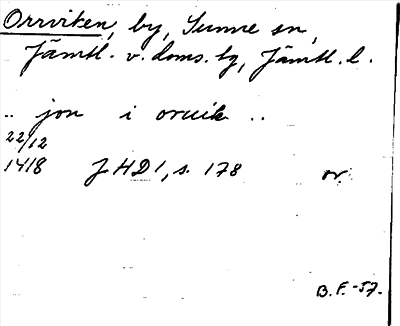 Orrviken, by, Sunne sn,
Jämtl. v. doms. tg, Jämtl. l.
.. jon i oruik ..
22/12
1418 JHD1, s. 178 or.
B.F. -57.